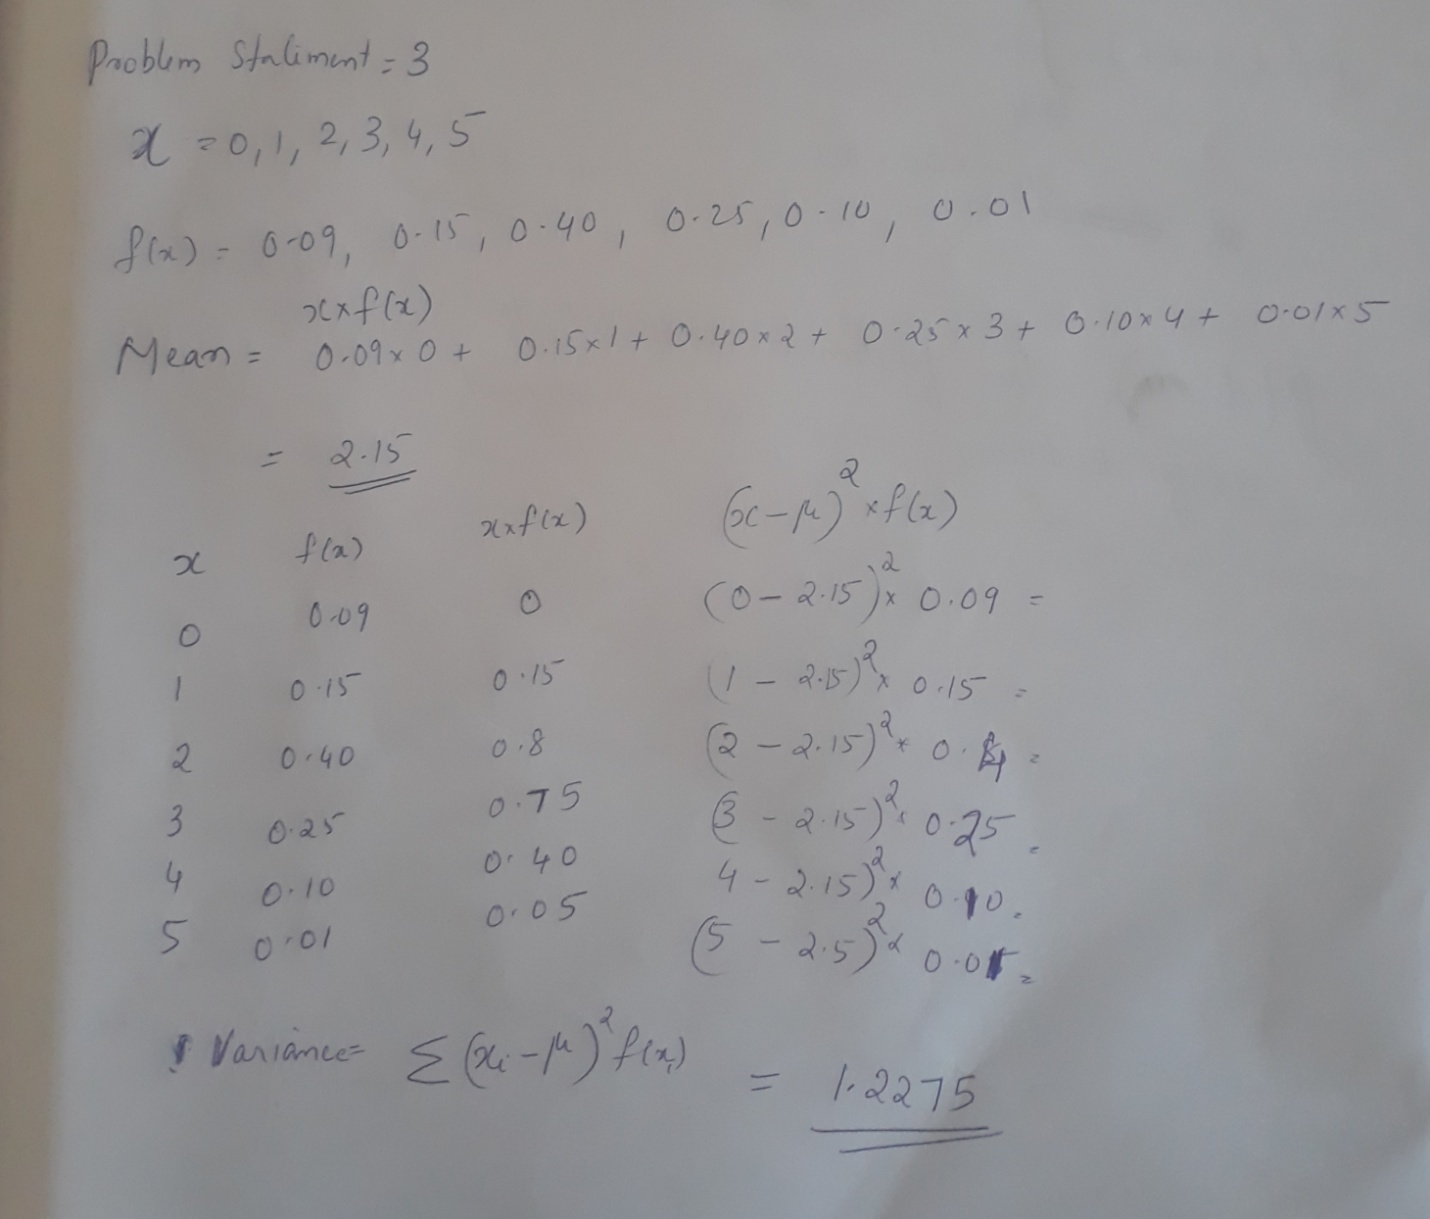 Problem Statiment = 3
x = 0, 1, 2, 3, 4, 5
f(x) = 0.09, 0.15, 0.40, 0.25, 0.10, 0.01
x×f(x)
Mean = 0.09×0 + 0.15×1 + 0.40×2 + 0.25×3 + 0.10×4 + 0.01×5
= 2.15
x f(x) x×f(x) (x-μ)²×f(x)
0 0.09 0 (0-2.15)²× 0.09 =
1 0.15 0.15 (1 - 2.15)²× 0.15 =
2 0.40 0.8 (2 - 2.15)²× 0.4 =
3 0.25 0.75 (3 - 2.15)²× 0.25 =
4 0.10 0.40 4 - 2.15)²× 0.10 =
5 0.01 0.05 (5 - 2.5)²× 0.01 =
Variance= Σ(xᵢ-μ)²f(xᵢ) = 1.2275